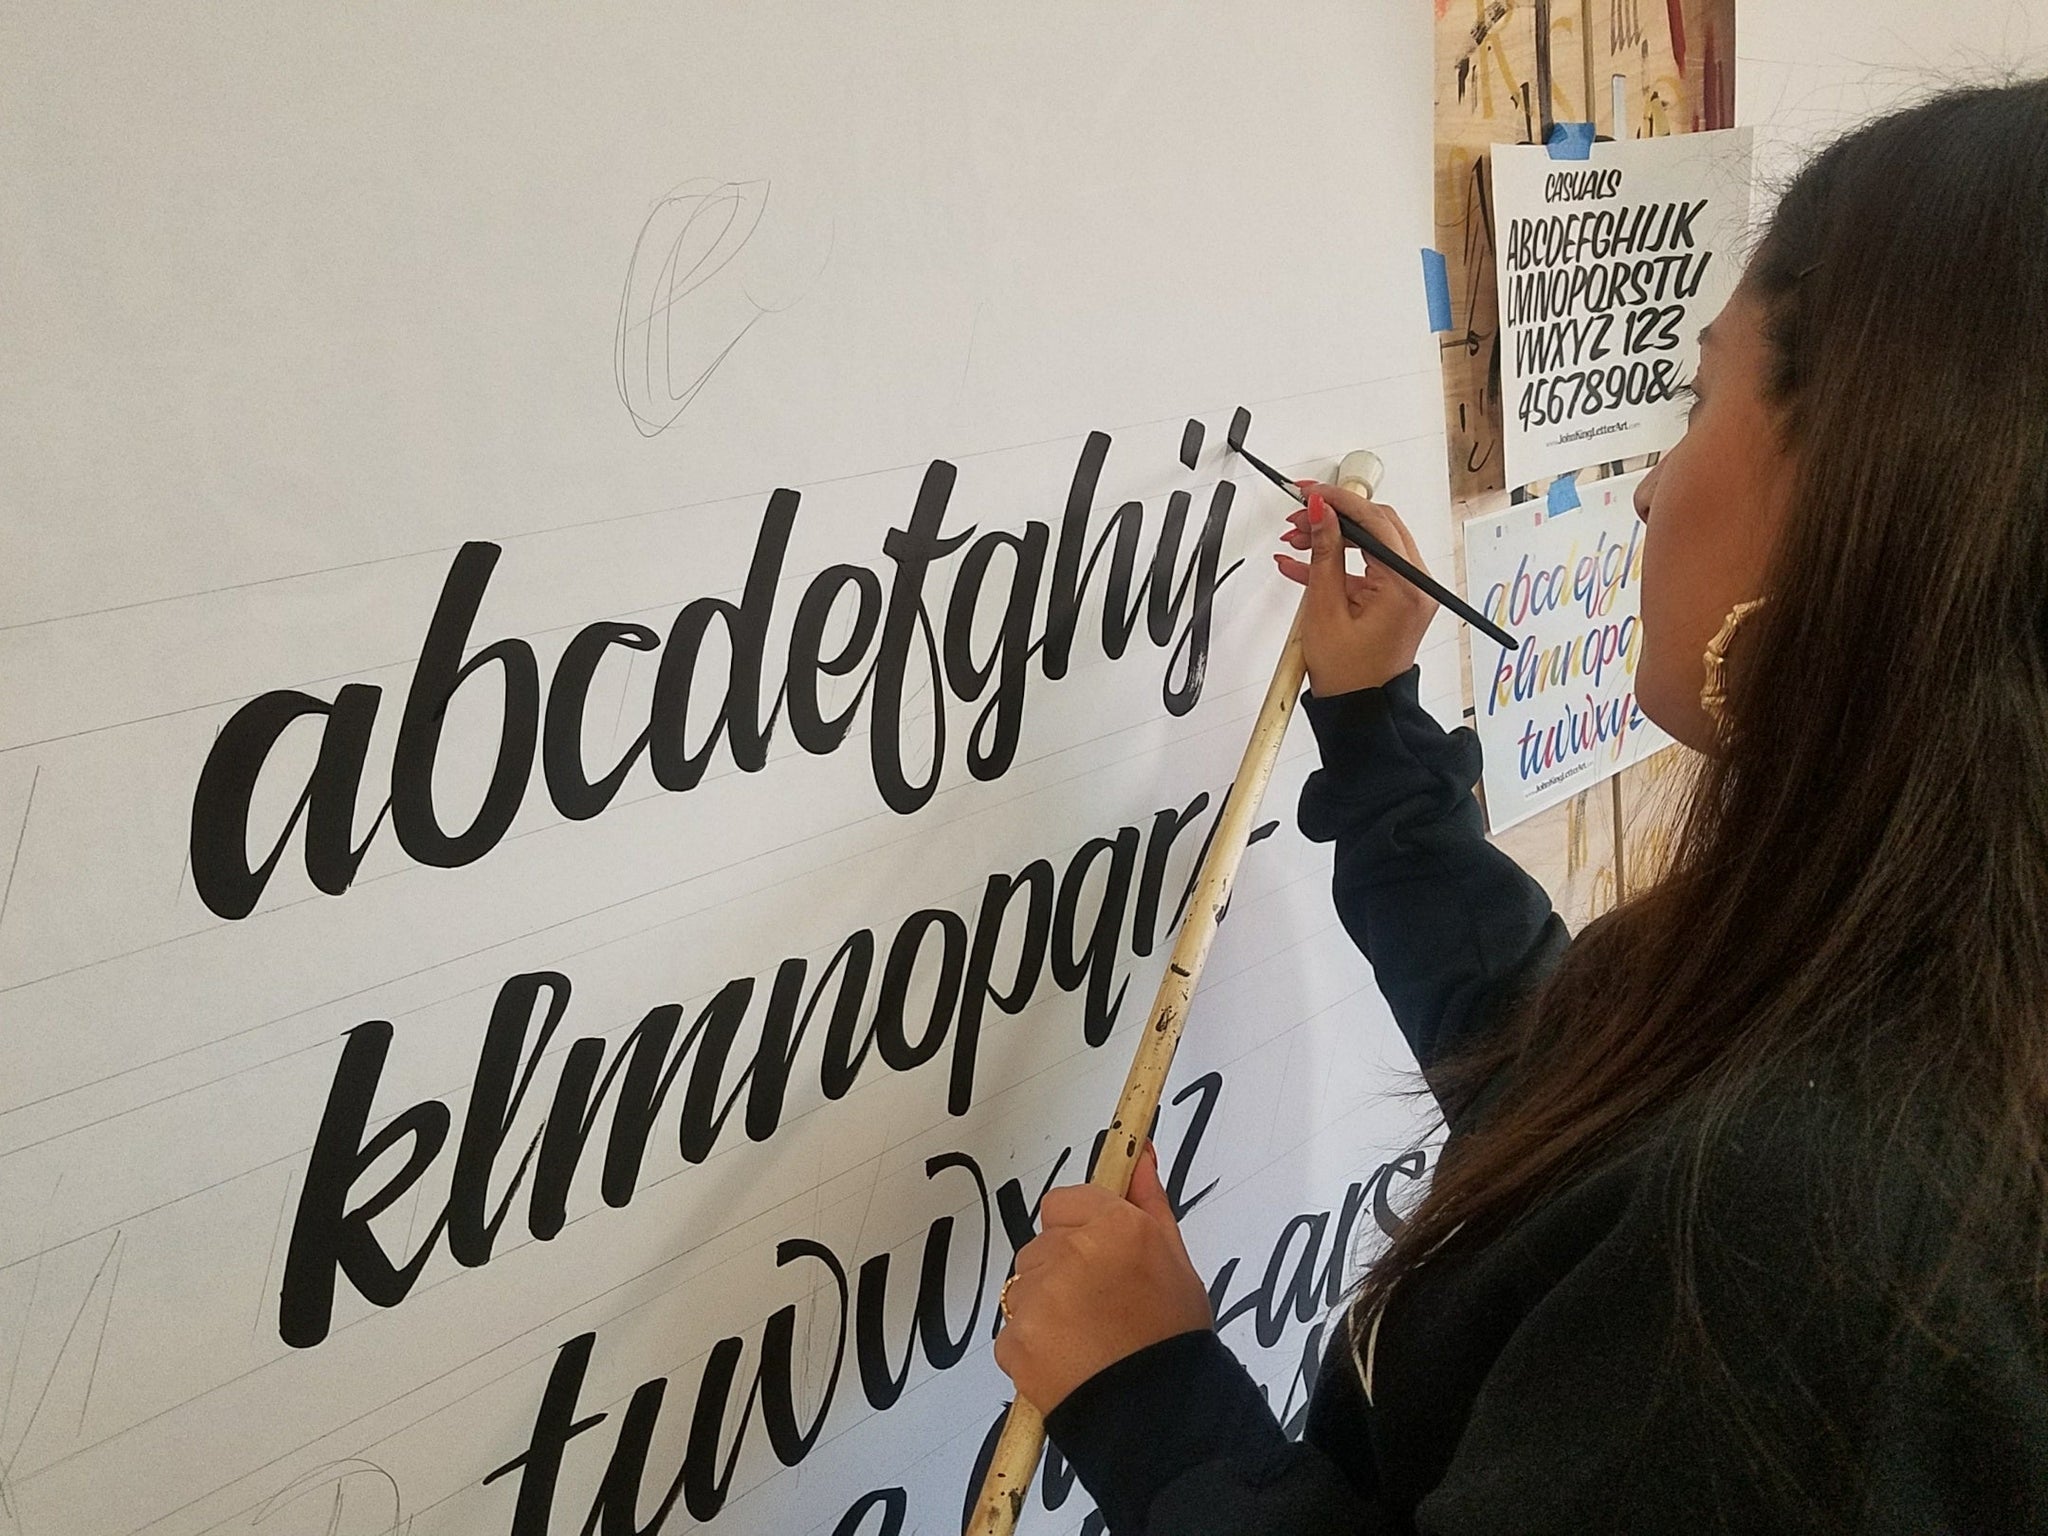 abcdefghij
klmnopqr
tuvwxyz
ars
CASUALS
ABCDEFGHIJK
LMNOPQRSTU
VWXYZ 123
4567890&
www.JohnKingLetterArt.com
abcdefgh
klmnopq
tuvwxyz
www.JohnKingLetterArt.com